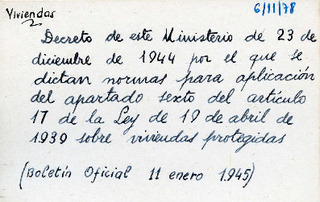 Viviendas
6/11/78
Decreto de este Ministerio de 23 de
diciembre de 1944 por el que se
dictan normas para aplicación
del apartado sexto del artículo
17 de la Ley de 19 de abril de
1939 sobre viviendas protegidas
(Boletín Oficial 11 enero 1945)